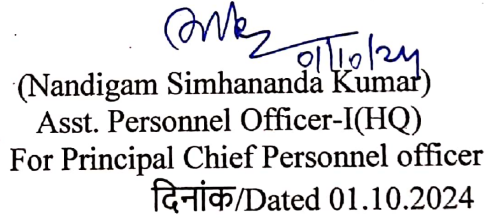 01/10/24
(Nandigam Simhananda Kumar)
Asst. Personnel Officer-I(HQ)
For Principal Chief Personnel officer
दिनांक/Dated 01.10.2024